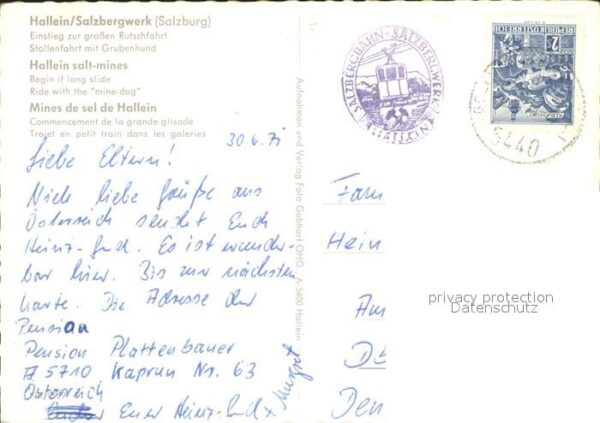 Hallein/Salzbergwerk (Salzburg)
Einstieg zur großen Rutschfahrt
Stollenfahrt mit Grubenhund
Hallein salt-mines
Begin if long slide
Ride with the "mine-dog"
Mines de sel de Hallein
Commencement de la grande glisade
Trajet en petit train dans les galeries
30.6.71
Liebe Eltern!
Viele liebe Grüße aus
Österreich sendet Euch
Heinz-Gud. Es ist wunder-
bar hier. Bis zur nächsten
Karte. Die Adresse der
Pension
Pension Plattenbauer
A 5710 Kaprun Nr. 63
Österreich
Euer Heinz-Gud x
Margret
Aufnahmen und Verlag Foto Gebhart OHG, A-5400 Hallein
SALZBERGBAHN · SALZBERGWERK
HALLEIN
REPUBLIK ÖSTERREICH
5440
Fam
Hein
Am
Den
privacy protection
Datenschutz